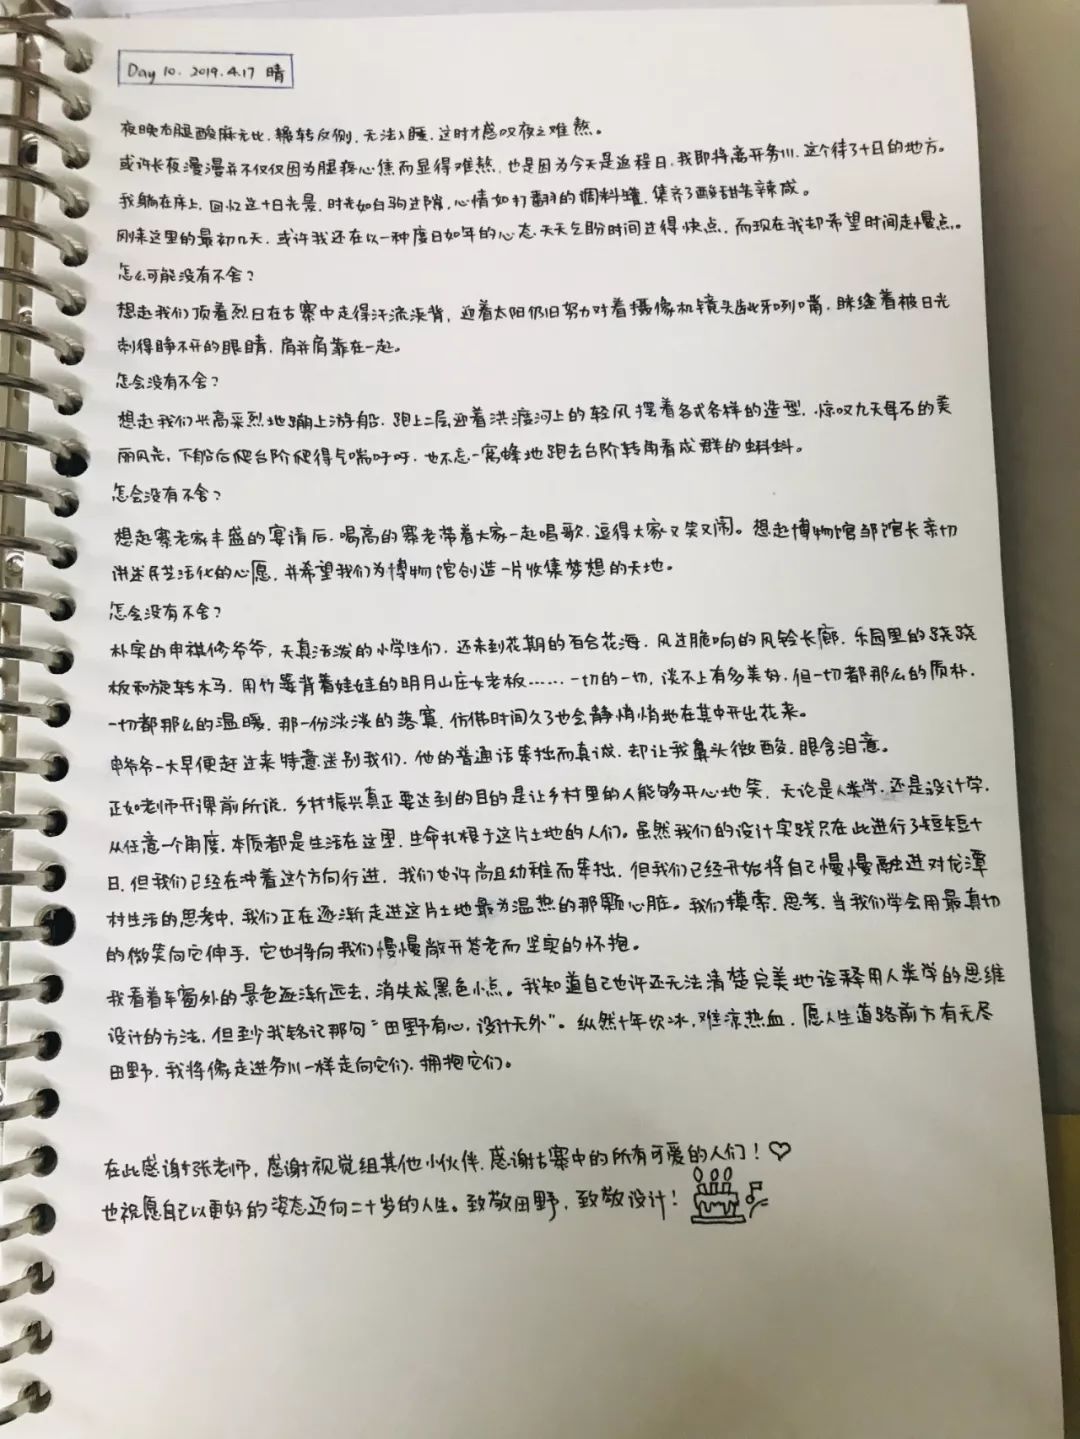 Day 10. 2019.4.17 晴
夜晚右腿酸麻无比，辗转反侧，无法入睡，这时才感叹夜之难熬。
或许长夜漫漫并不仅仅因为腿疼心焦而显得难熬，也是因为今天是返程日，我即将离开务川，这个待了十日的地方。
我躺在床上，回忆这十日光景，时光如白驹过隙，心情如打翻的调料罐，集齐了酸甜苦辣咸。
刚来这里的最初几天，或许我还在以一种度日如年的心态天天乞盼时间过得快点，而现在我却希望时间走慢点。
怎么可能没有不舍？
想起我们顶着烈日在古寨中走得汗流浃背，迎着太阳仍旧努力对着摄像机镜头龇牙咧嘴，眯缝着被日光
刺得睁不开的眼睛，肩并肩靠在一起。
怎会没有不舍？
想起我们兴高采烈地蹦上游船，跑上二层迎着洪渡河上的轻风摆着各式各样的造型，惊叹九天母石的美
丽风光，下船后爬台阶爬得气喘吁吁，也不忘一窝蜂地跑去台阶转角看成群的蝌蚪。
怎会没有不舍？
想起寨老家丰盛的宴请后，喝高的寨老带着大家一起唱歌，逗得大家又笑又闹。想起博物馆邹馆长亲切
讲述民艺活化的心愿，并希望我们为博物馆创造一片收集梦想的天地。
怎会没有不舍？
朴实的申祺修爷爷，天真活泼的小学生们，还未到花期的百合花海，风过脆响的风铃长廊，乐园里的跷跷
板和旋转木马，用竹篓背着娃娃的明月山庄女老板……一切的一切，谈不上有多美好，但一切都那么的质朴，
一切都那么的温暖，那一份淡淡的落寞，仿佛时间久了也会静悄悄地在其中开出花来。
申爷爷一大早便赶过来特意送别我们，他的普通话笨拙而真诚，却让我鼻头微酸，眼含泪意。
正如老师开课前所说，乡村振兴真正要达到的目的是让乡村里的人能够开心地笑，无论是人类学，还是设计学，
从任意一个角度，本质都是生活在这里，生命扎根于这片土地的人们。虽然我们的设计实践只在此进行了短短十
日，但我们已经在冲着这个方向行进，我们也许尚且幼稚而笨拙，但我们已经开始将自己慢慢融进对龙潭
村生活的思考中，我们正在逐渐走进这片土地最为温热的那颗心脏。我们摸索，思考，当我们学会用最真切
的微笑向它伸手，它也将向我们慢慢敞开苍老而坚实的怀抱。
我看着车窗外的景色逐渐远去，消失成黑色小点。我知道自己也许还无法清楚完美地诠释用人类学的思维
设计的方法，但至少我铭记那句“田野有心，设计无外”。纵然十年饮冰，难凉热血，愿人生道路前方有无尽
田野，我将像走进务川一样走向它们，拥抱它们。
在此感谢张老师，感谢视觉组其他小伙伴，感谢古寨中的所有可爱的人们！♡
也祝愿自己以更好的姿态迈向二十岁的人生。致敬田野，致敬设计！